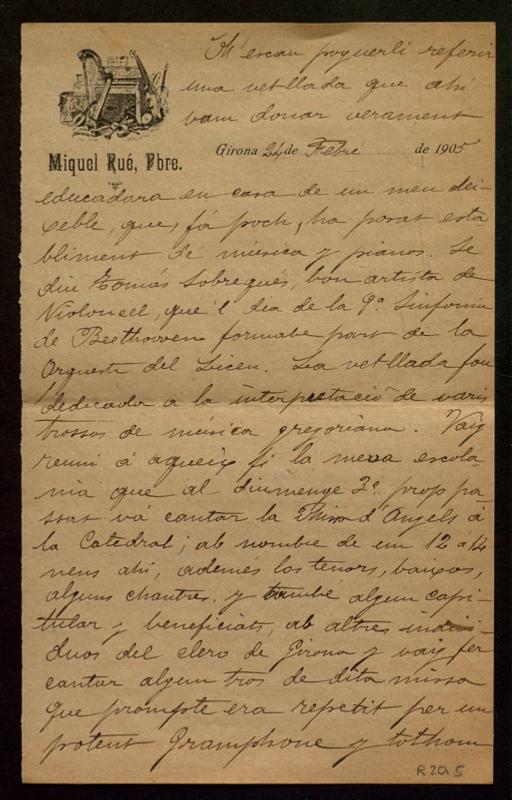 M' escau poguerli referir
una vetllada que ahí
vam donar verament
Miquel Rué, Pbre.
Girona 24 de Febré de 1905
educadora en casa de un meu dei-
xeble, que, fá poch, ha posat esta
bliment de música y pianos. Se
diu Tomás Sobrequés, bon artista de
Violoncel, que 'l dia de la 9ª Sinfonia
de Beethoven formabe part de la
Orquesta del Liceu. La vetllada fou
dedicada a la interpretació de varis
trossos de musica gregoriana. Vaig
reuni á aqueix fi la meva escola
nia que al diumenge 3e. prop pa
ssat vá cantar la Missa d'Angels á
la Catedral; ab nombre de un 12 a 14
nens ahí, ademés los tenors, baixos,
alguns chantres, y tambe algun capi-
tular y beneficiats, ab altres indivi-
duos del clero de Girona y vaig fer
cantar algun tros de dita missa
que prompte era repetit per un
potent Gramphone y tothom
R 20,5